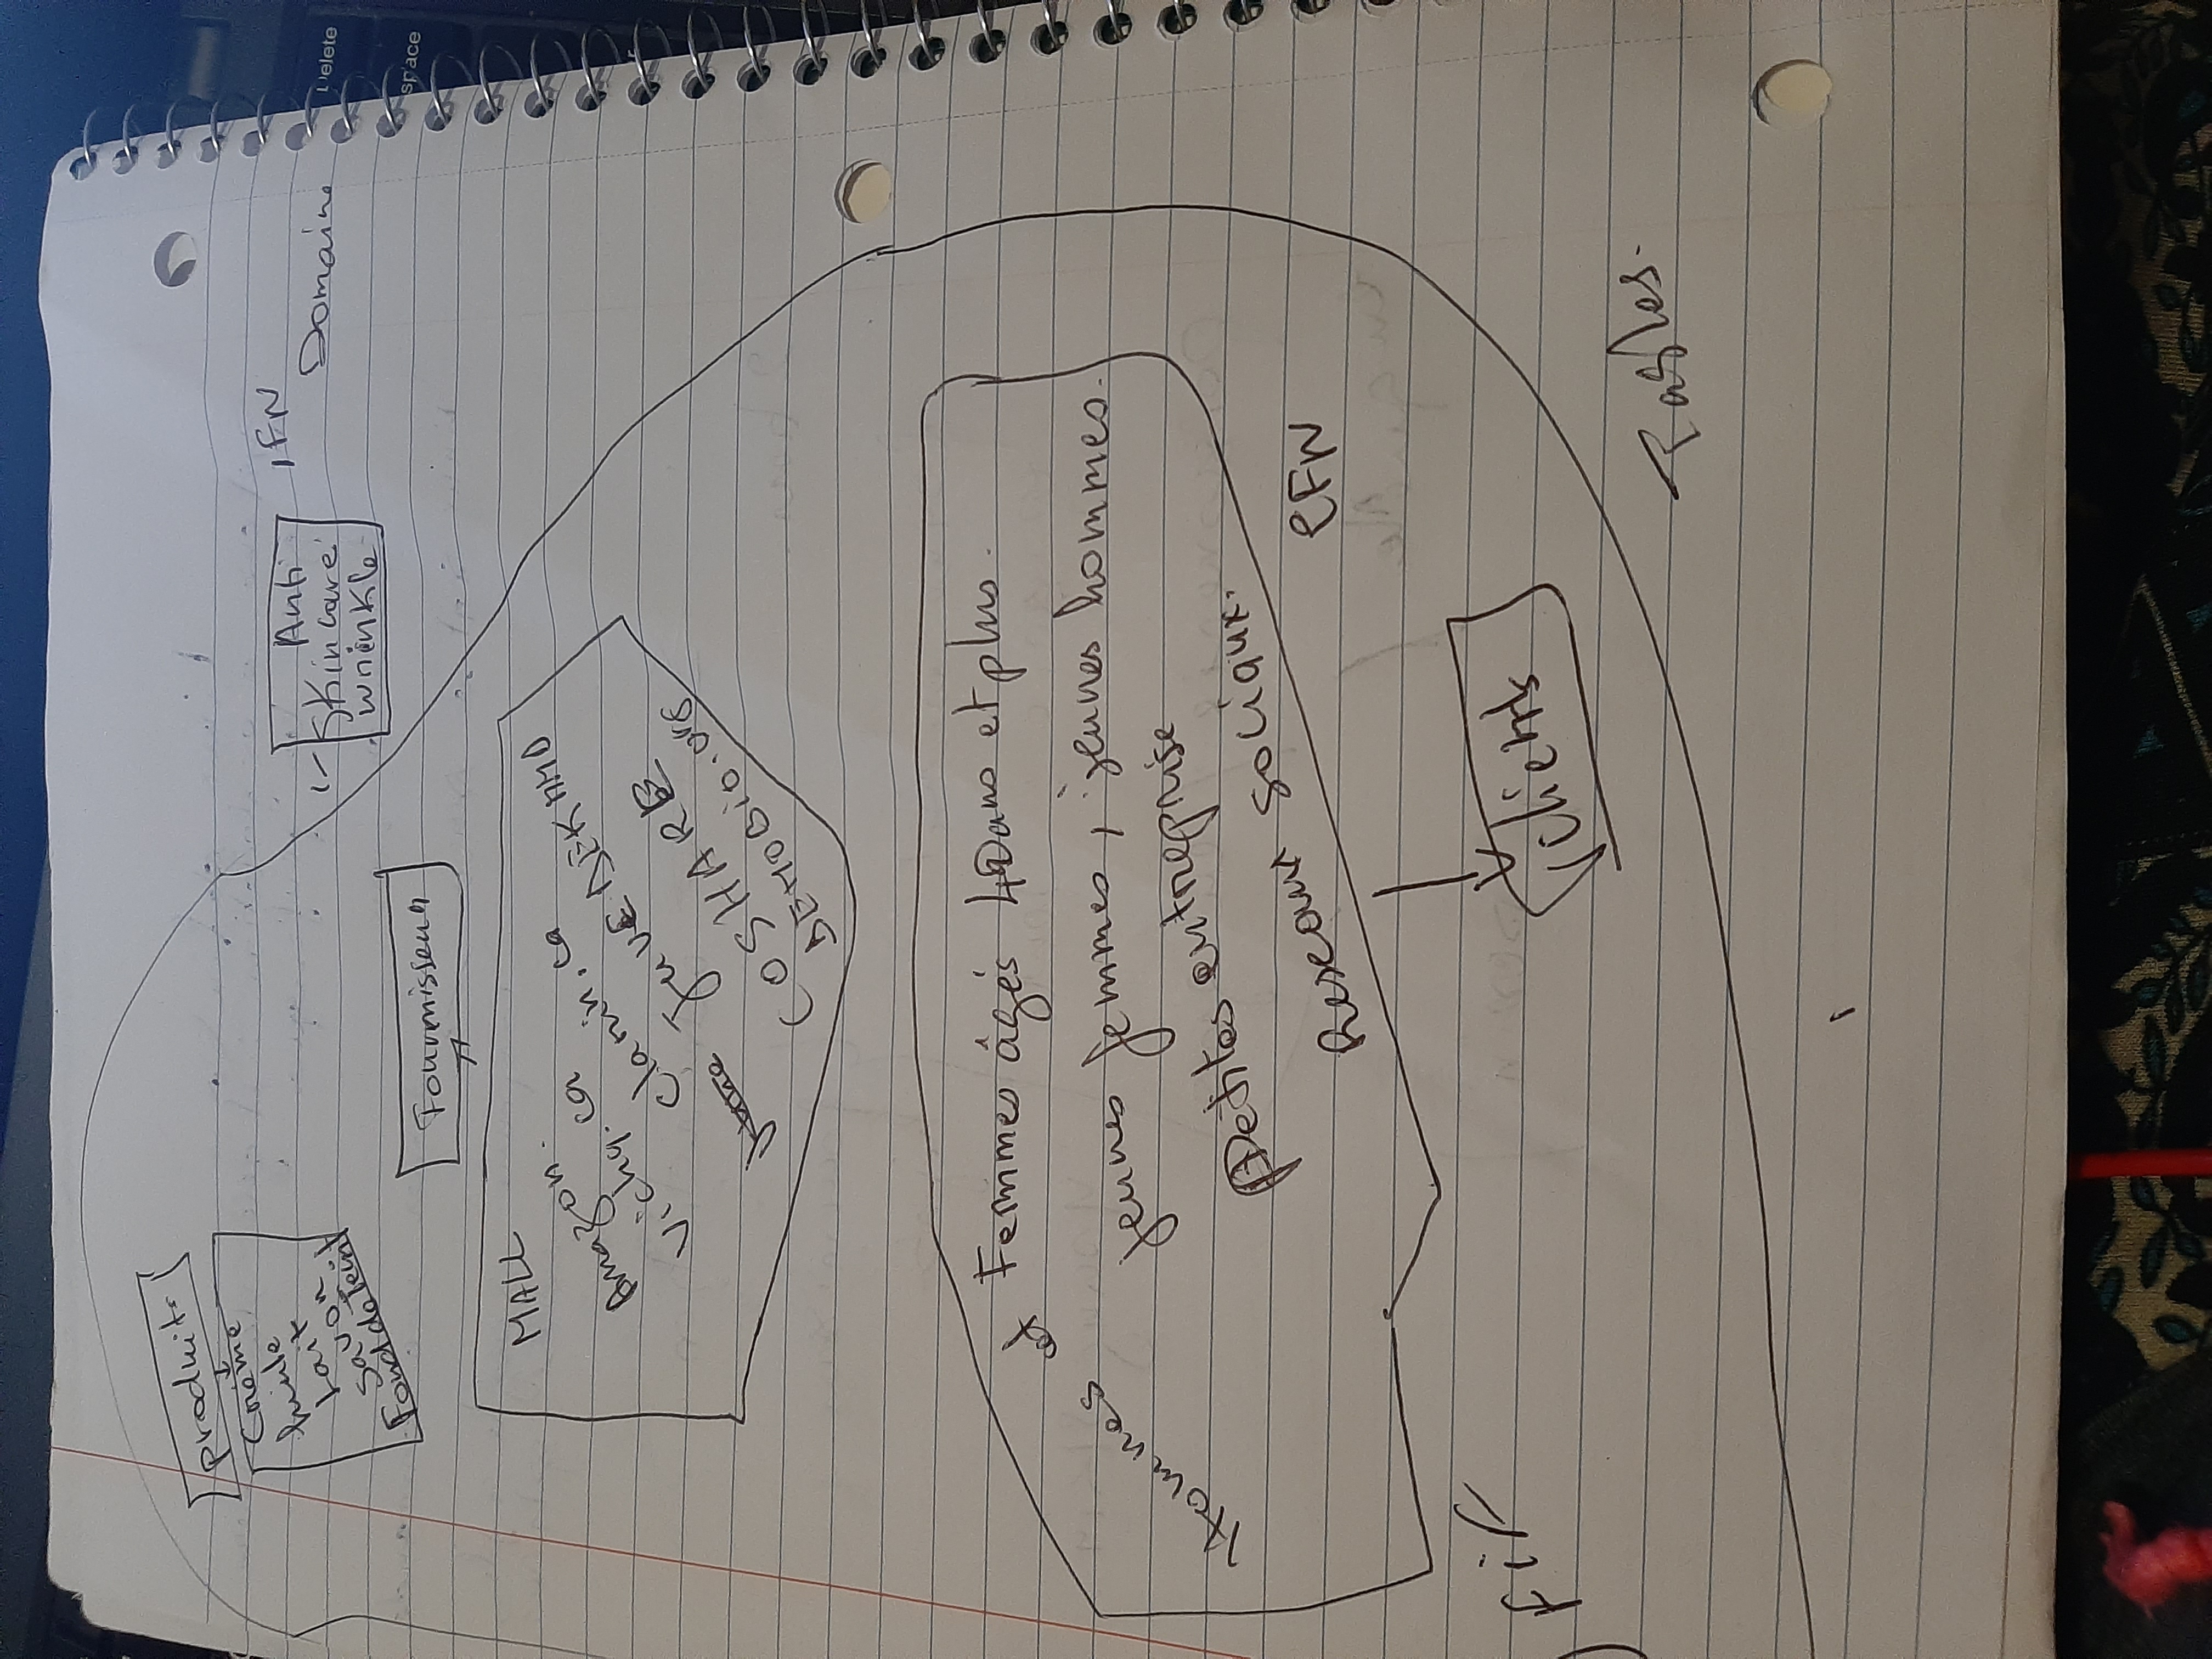 produits
Crème
huile
Lait
savon
Fond de Teint
Anti
skin care
wrinkle
1FN
Domaine
Delete
space
Fournisseur
MALL
Amazon.
Vichy.ca
Clarin.ca
JUVEDEKMMD
COSHARE
DEMOBIO.org
Hommes et Femmes âgés 40 ans et plus.
jeunes femmes, jeunes hommes.
Petites entreprise
Reseaux sociaux.
2FN
Clients
Tables.